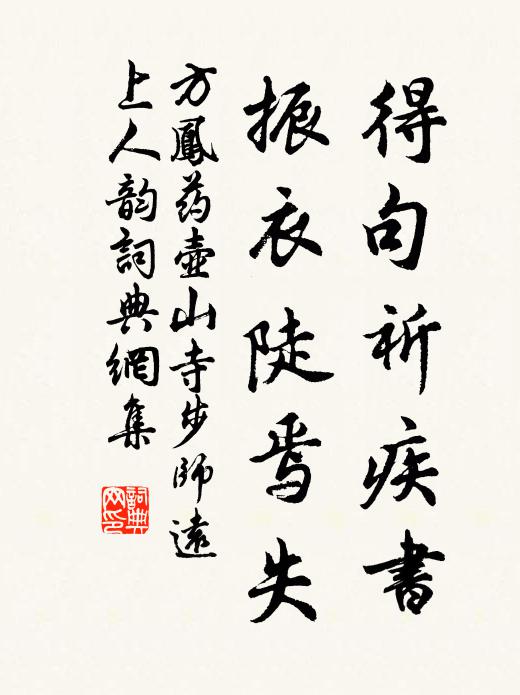 得句祈疾書
振衣陡焉失
方鳳药壺山寺步師遠
上人韵詞典網集
詞典网印